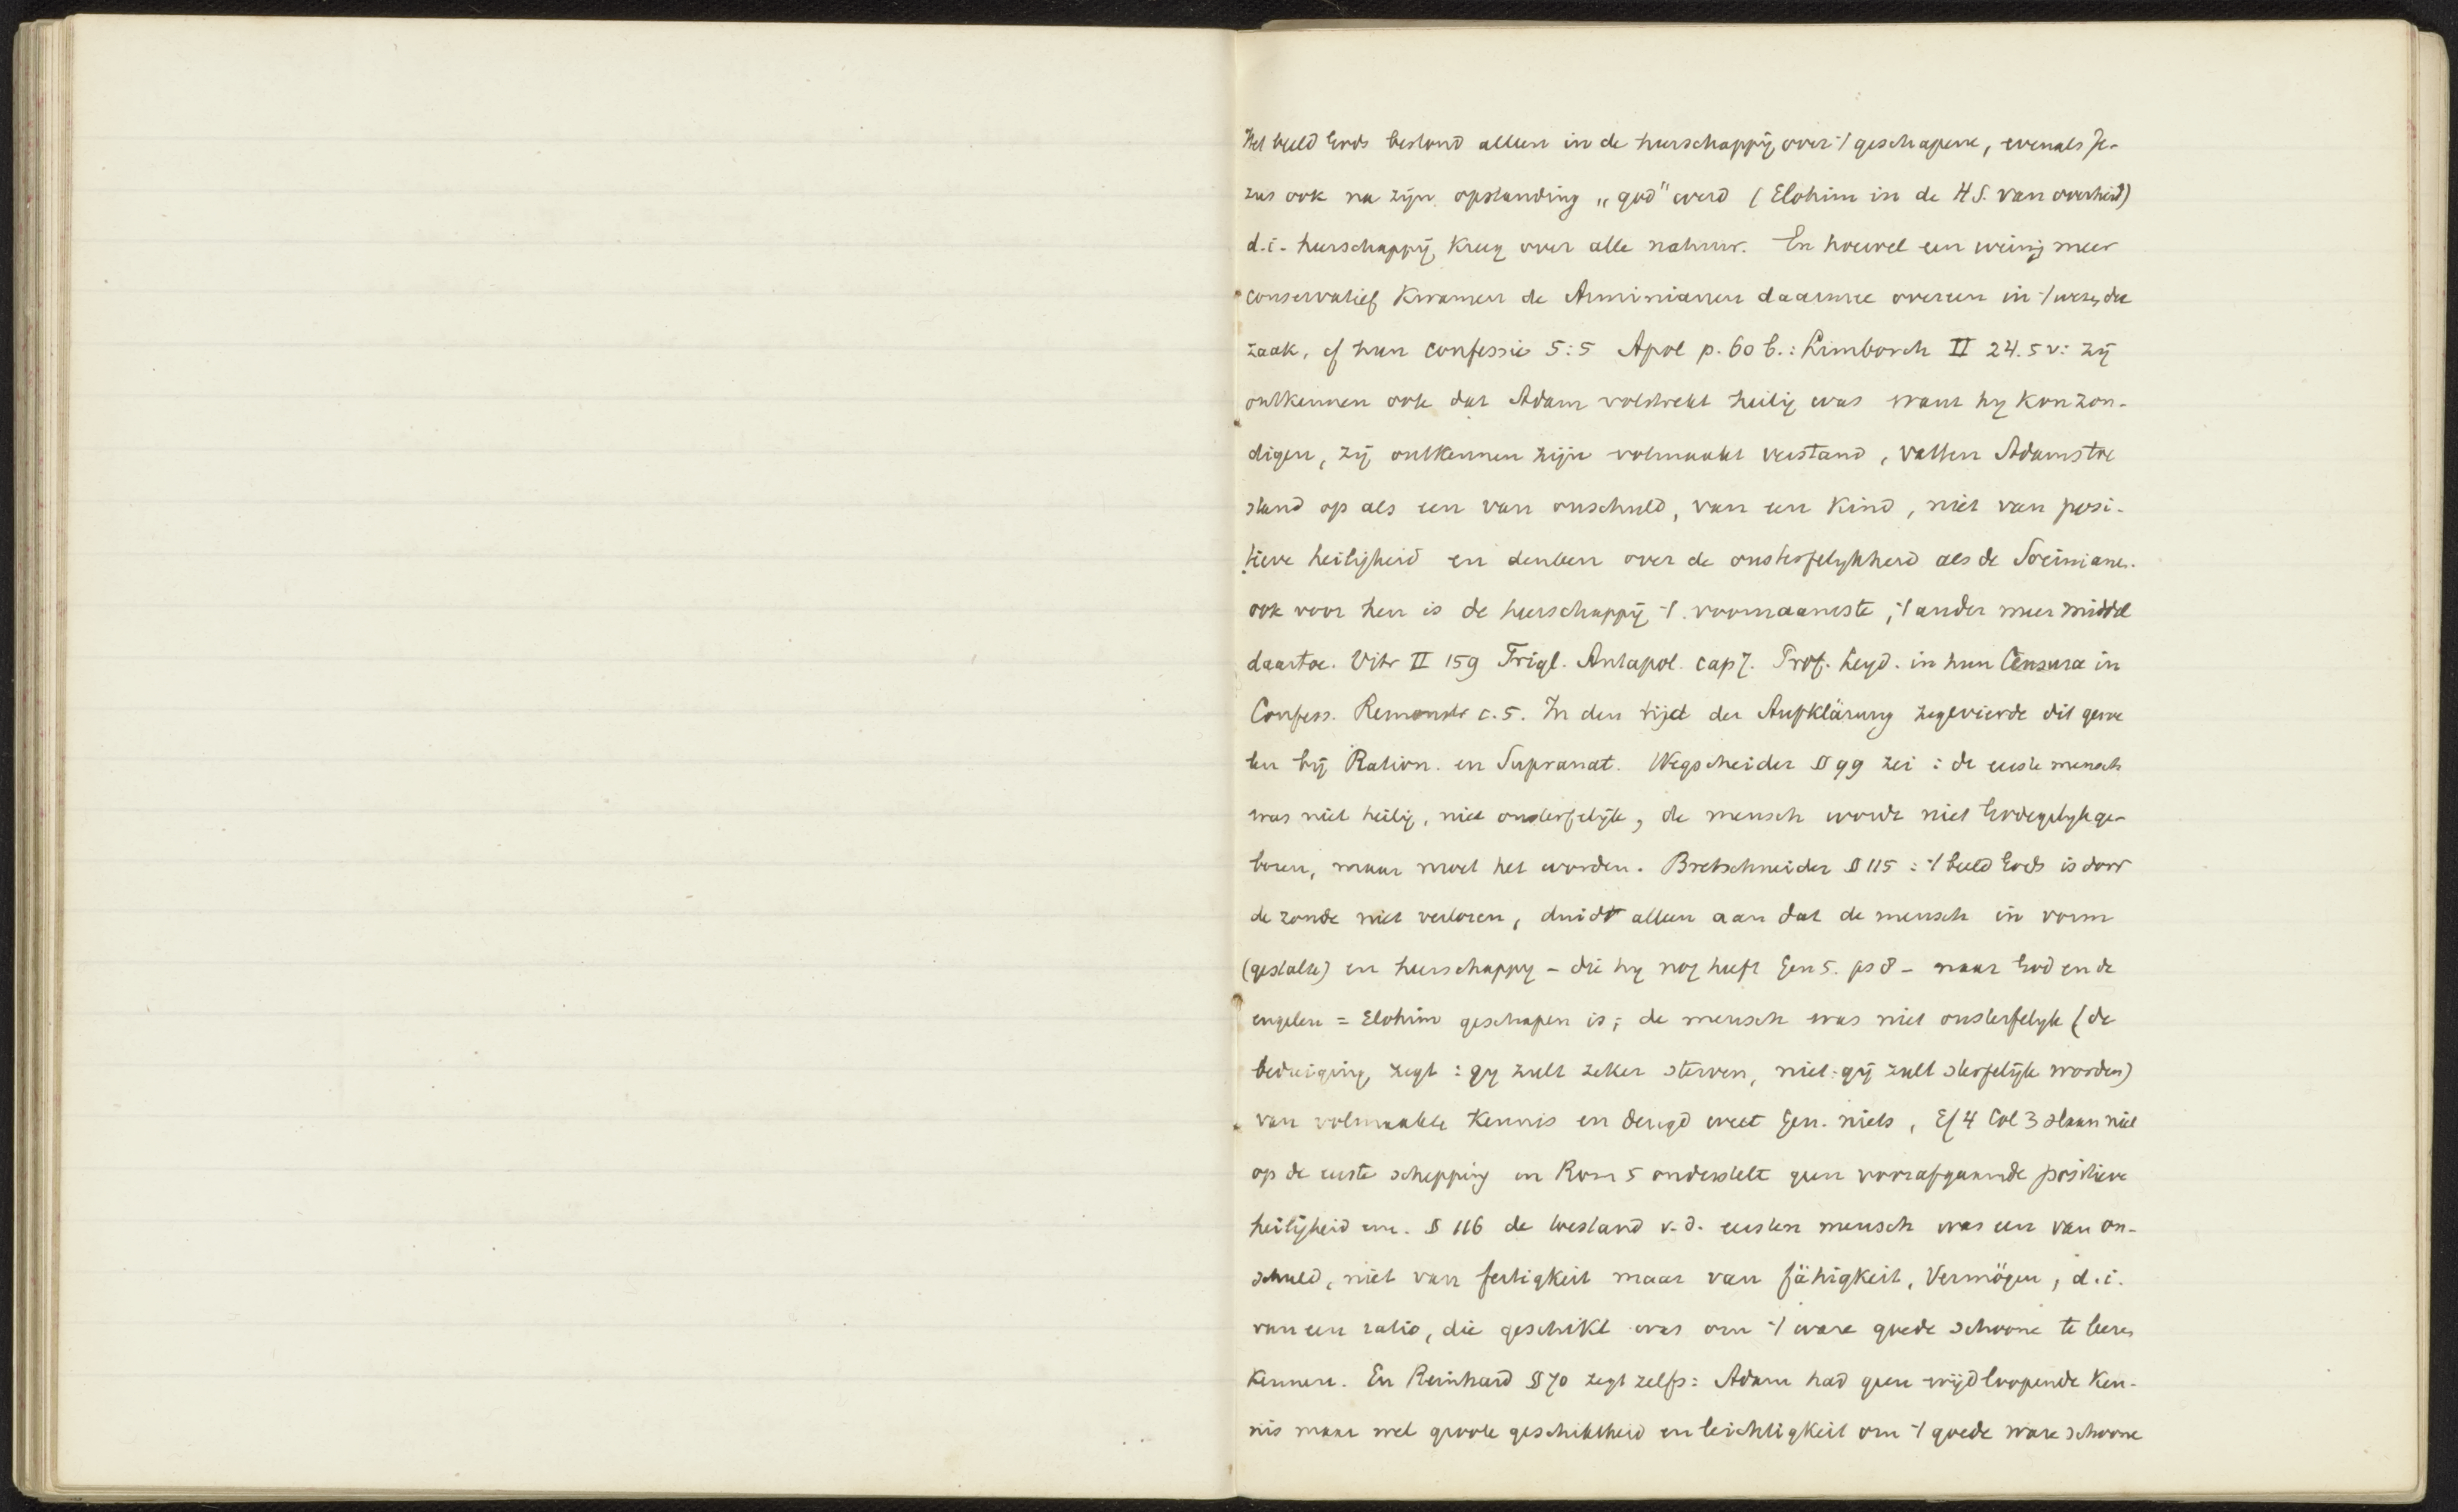 Het beeld Gods bestond alleen in de heerschappij over 't geschapene, evenals Je-
zus ook na zijn opstanding „god" werd (Elohim in de H.S. van overheid)
d.i. heerschappij kreeg over alle natuur. En hoewel een weinig meer
conservatief kwamen de Arminianen daarmee overeen in 't wezen der
zaak, cf hun confessie 5:5 Apol p. 60 b.: Limborch II 24.5 v: zij
ontkennen ook dat Adam volstrekt heilig was want hy kon zon-
digen, zij ontkennen zijn volmaakt verstand, vatten Adams toe
stand op als een van onschuld, van een kind, niet van posi-
tieve heiligheid en denken over de onsterfelykheid als de Socinianen.
ook voor hen is de heerschappij 't voornaamste, 't ander meer middel
daartoe. Vitr II 159 Trigl. Antapol. cap 7. Prof. Leyd. in hun Censura in
Confess. Remonstr c.5. In den tijd der Aufklärung zegevierde dit gevoe
len bij Ration. en Supranat. Wegscheider § 99 zei : de eerste mensch
was niet heilig, niet onsterfelijk, de mensch wordt niet Godegelyk ge-
boren, maar moet het worden. Bretschneider § 115 : 't beeld Gods is door
de zonde niet verloren, duidt alleen aan dat de mensch in vorm
(gestalte) en heerschappy – die hy nog heeft Gen 5. ps 8 – naar God en de
engelen = Elohim geschapen is; de mensch was niet onsterfelyk (de
bedreiging zegt : gy zult zeker sterven, niet: gij zult sterfelijk worden)
van volmaakte kennis en deugd weet Gen. niets, Ef 4 Col 3 slaan niet
op de eerste schepping en Rom 5 onderstelt geen voorafgaande positieve
heiligheid enz. § 116 de toestand v.d. eersten mensch was een van on-
schuld, niet van fertigkeit maar van fähigkeit, Vermögen, d.i.
van een ratio, die geschikt was om 't ware goede schoone te leeren
kennen. En Reinhard § 70 zegt zelfs: Adam had geen wijdloopende ken-
nis maar wel groote geschiktheid en leichtigkeit om 't goede ware schoone